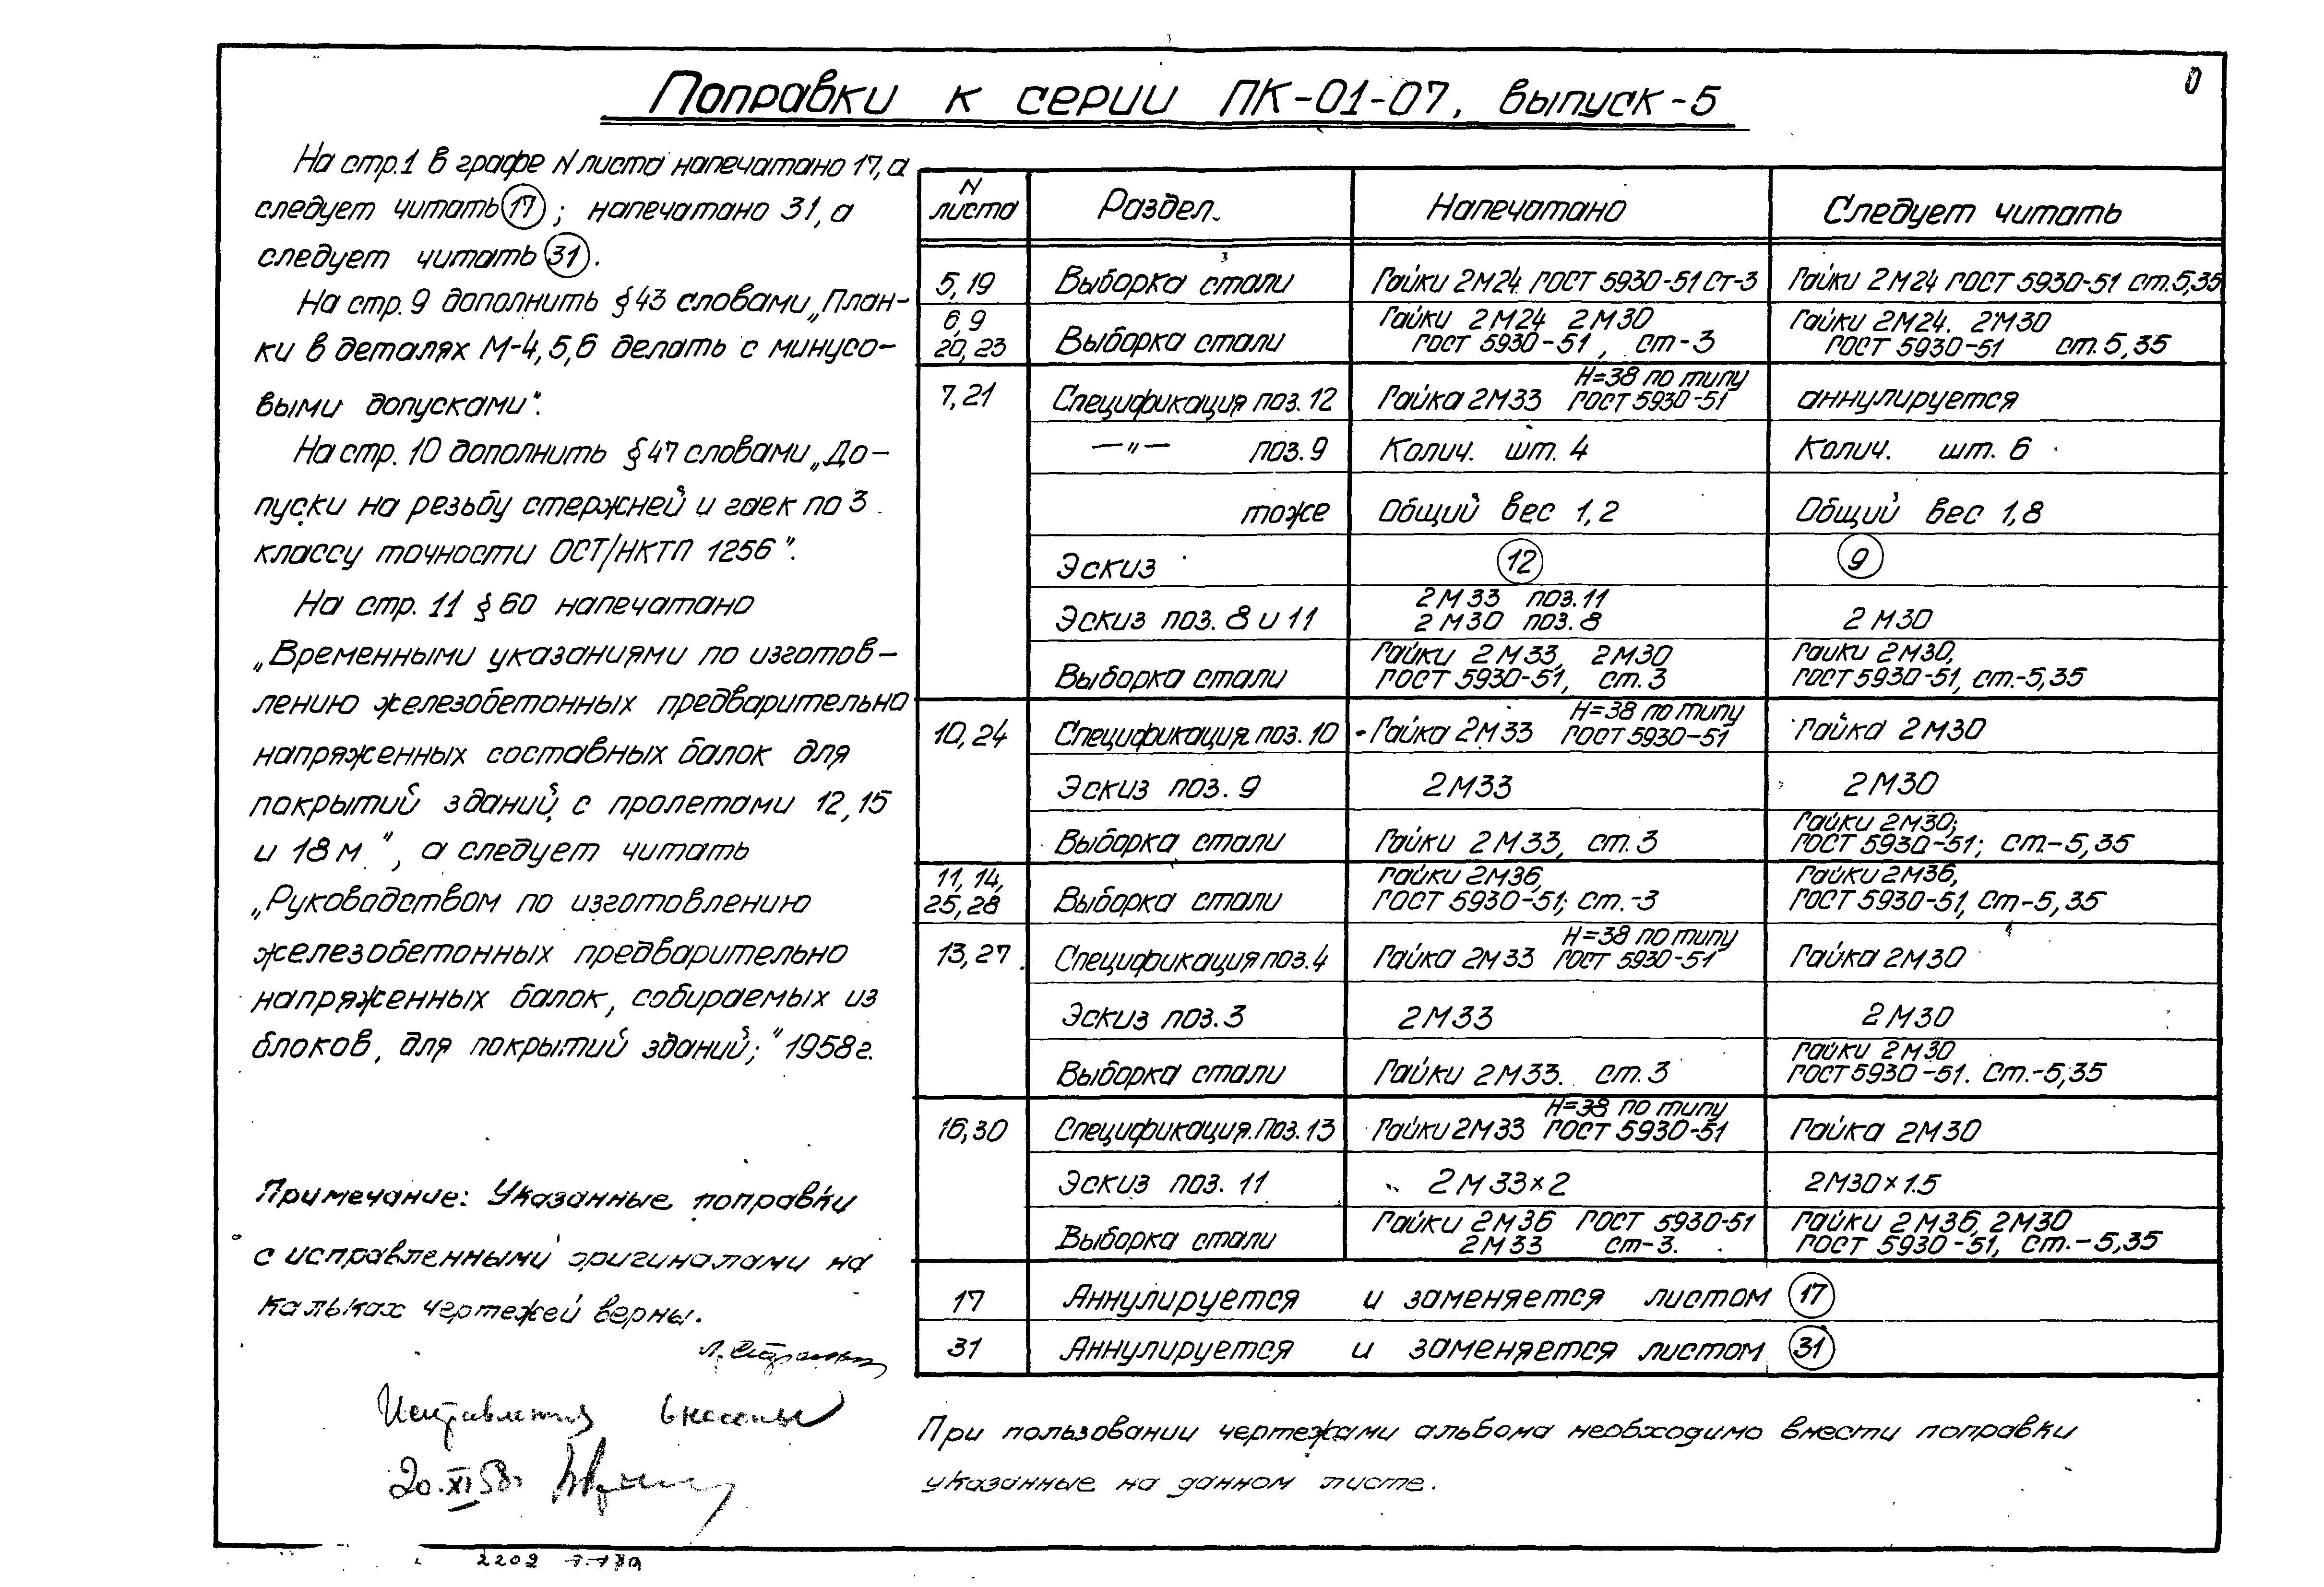 Поправки к серии ПК-01-07, выпуск-5
На стр.1 в графе N листа напечатано 17, а
следует читать 17 ; напечатано 31, а
следует читать 31 .
На стр. 9 дополнить § 43 словами „План-
ки в деталях М-4,5,6 делать с минусо-
выми допусками".
На стр. 10 дополнить § 47 словами „До-
пуски на резьбу стержней и гаек по 3
классу точности ОСТ/НКТП 1256".
На стр. 11 § 60 напечатано
„Временными указаниями по изготов-
лению железобетонных предварительно
напряженных составных балок для
покрытий зданий с пролетами 12,15
и 18 м", а следует читать
„Руководством по изготовлению
железобетонных предварительно
напряженных балок, собираемых из
блоков, для покрытий зданий;" 1958г.
Примечание: Указанные поправки
с исправленными оригиналами на
кальках чертежей верны.
20.XI.58г
N листа Раздел. Напечатано Следует читать
5,19 Выборка стали Гайки 2М24 ГОСТ 5930-51 Ст-3 Гайки 2М24 ГОСТ 5930-51 ст.5,35
6,9 20,23 Выборка стали Гайки 2М24 2М30 ГОСТ 5930-51, ст-3 Гайки 2М24. 2М30 ГОСТ 5930-51 ст.5,35
7,21 Спецификация поз.12 Гайка 2М33 Н=38 по типу ГОСТ 5930-51 аннулируется
—"— поз.9 Колич. шт. 4 Колич. шт. 6
тоже Общий вес 1,2 Общий вес 1,8
Эскиз 12 9
Эскиз поз. 8 и 11 2М33 поз.11 2М30 поз.8 2М30
Выборка стали Гайки 2М33, 2М30 ГОСТ 5930-51, ст.3 Гайки 2М30, ГОСТ 5930-51, ст.-5,35
10,24 Спецификация поз.10 Гайка 2М33 Н=38 по типу ГОСТ 5930-51 Гайка 2М30
Эскиз поз. 9 2М33 2М30
Выборка стали Гайки 2М33, ст.3 Гайки 2М30; ГОСТ 5930-51; Ст-5,35
11,14, 25,28 Выборка стали Гайки 2М36, ГОСТ 5930-51; Ст.-3 Гайки 2М36, ГОСТ 5930-51, Ст-5,35
13,27 Спецификация поз.4 Гайка 2М33 Н=38 по типу ГОСТ 5930-51 Гайка 2М30
Эскиз поз.3 2М33 2М30
Выборка стали Гайки 2М33. ст.3 Гайки 2М30 ГОСТ 5930-51. Ст.-5,35
16,30 Спецификация. Поз.13 Гайки 2М33 Н=38 по типу ГОСТ 5930-51 Гайка 2М30
Эскиз поз. 11 2М33×2 2М30×1.5
Выборка стали Гайки 2М36 ГОСТ 5930-51 2М33 ст-3. Гайки 2М36, 2М30 ГОСТ 5930-51, Ст.-5,35
17 Аннулируется и заменяется листом 17
31 Аннулируется и заменяется листом 31
При пользовании чертежами альбома необходимо внести поправки
указанные на данном листе.
2202